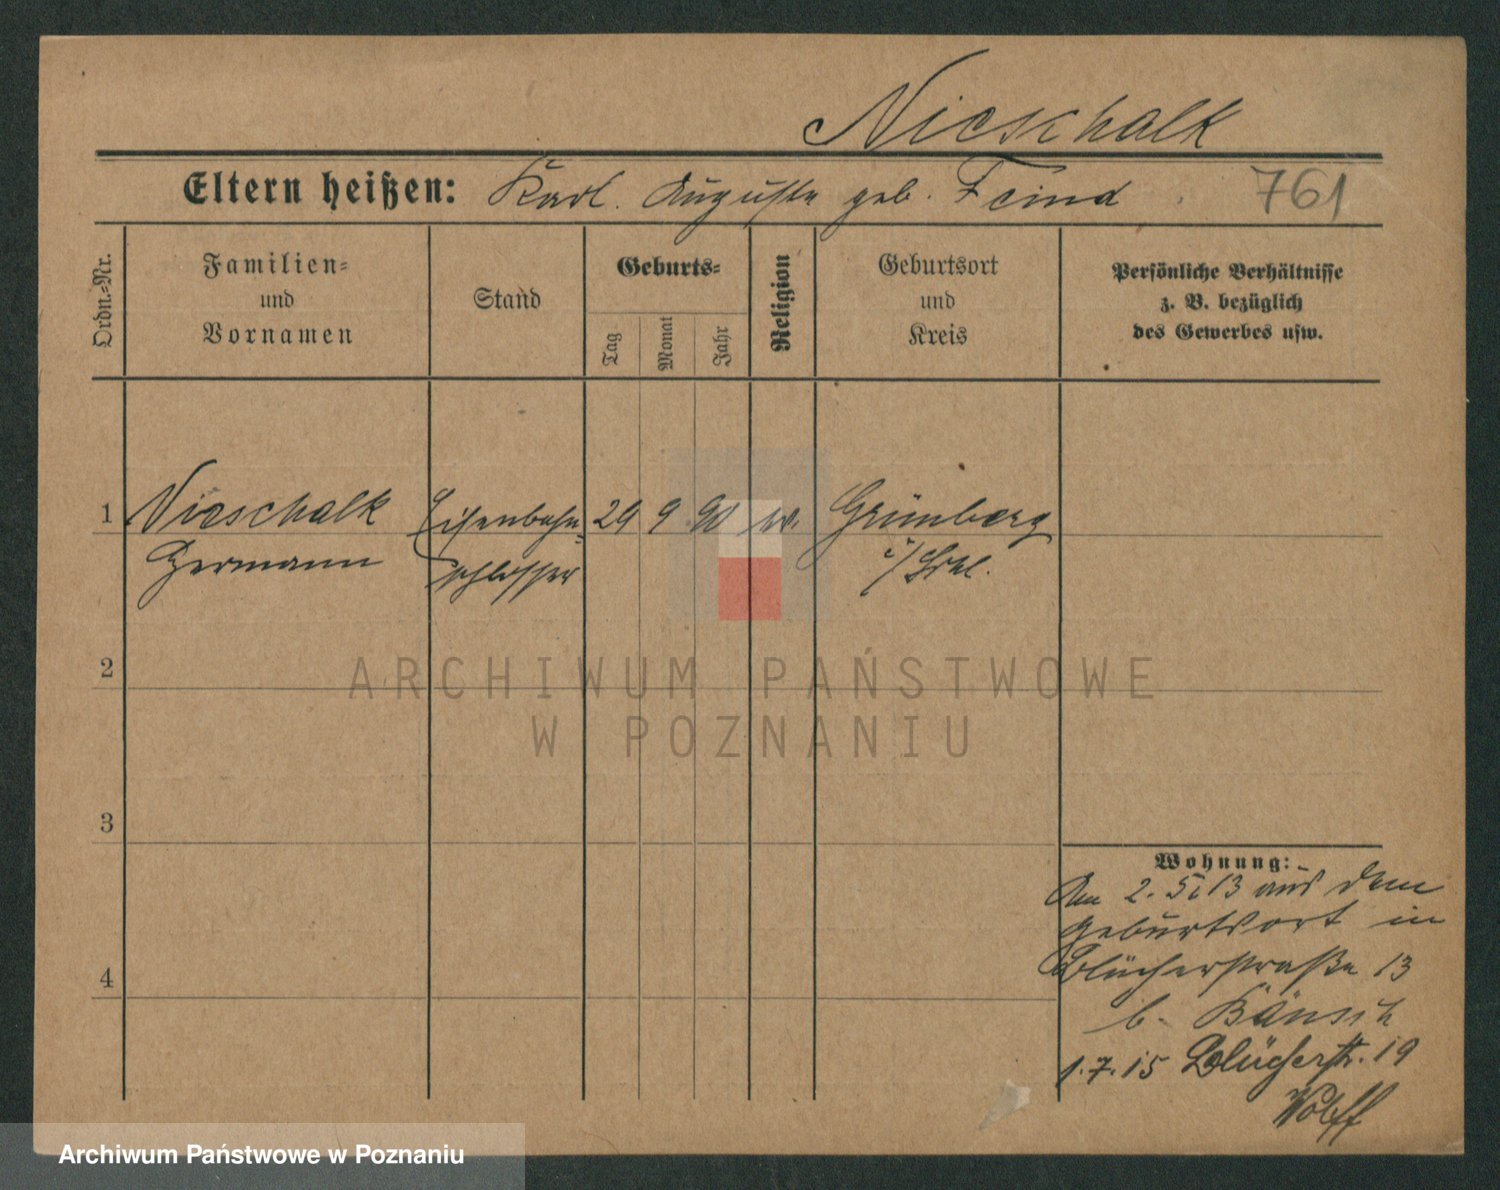 Nieschalk
Eltern heißen: Karl. Auguste geb. Feind 761
Ordn.-Nr.
Familien-
und
Vornamen
Stand
Geburts-
Tag
Monat
Jahr
Religion
Geburtsort
und
Kreis
Persönliche Verhältnisse
z. B. bezüglich
des Gewerbes usw.
1 Nieschalk Eisenbahn- 29 9 90 ev. Grünberg
Hermann schlosser i/Schl.
2
3
4
Wohnung:
Am 2. 5. 13 aus dem
Geburtsort in
Blücherstraße 13
b. Bänsch
1.7.15 Blücherstr. 19
Wolff
ARCHIWUM PAŃSTWOWE
W POZNANIU
Archiwum Państwowe w Poznaniu